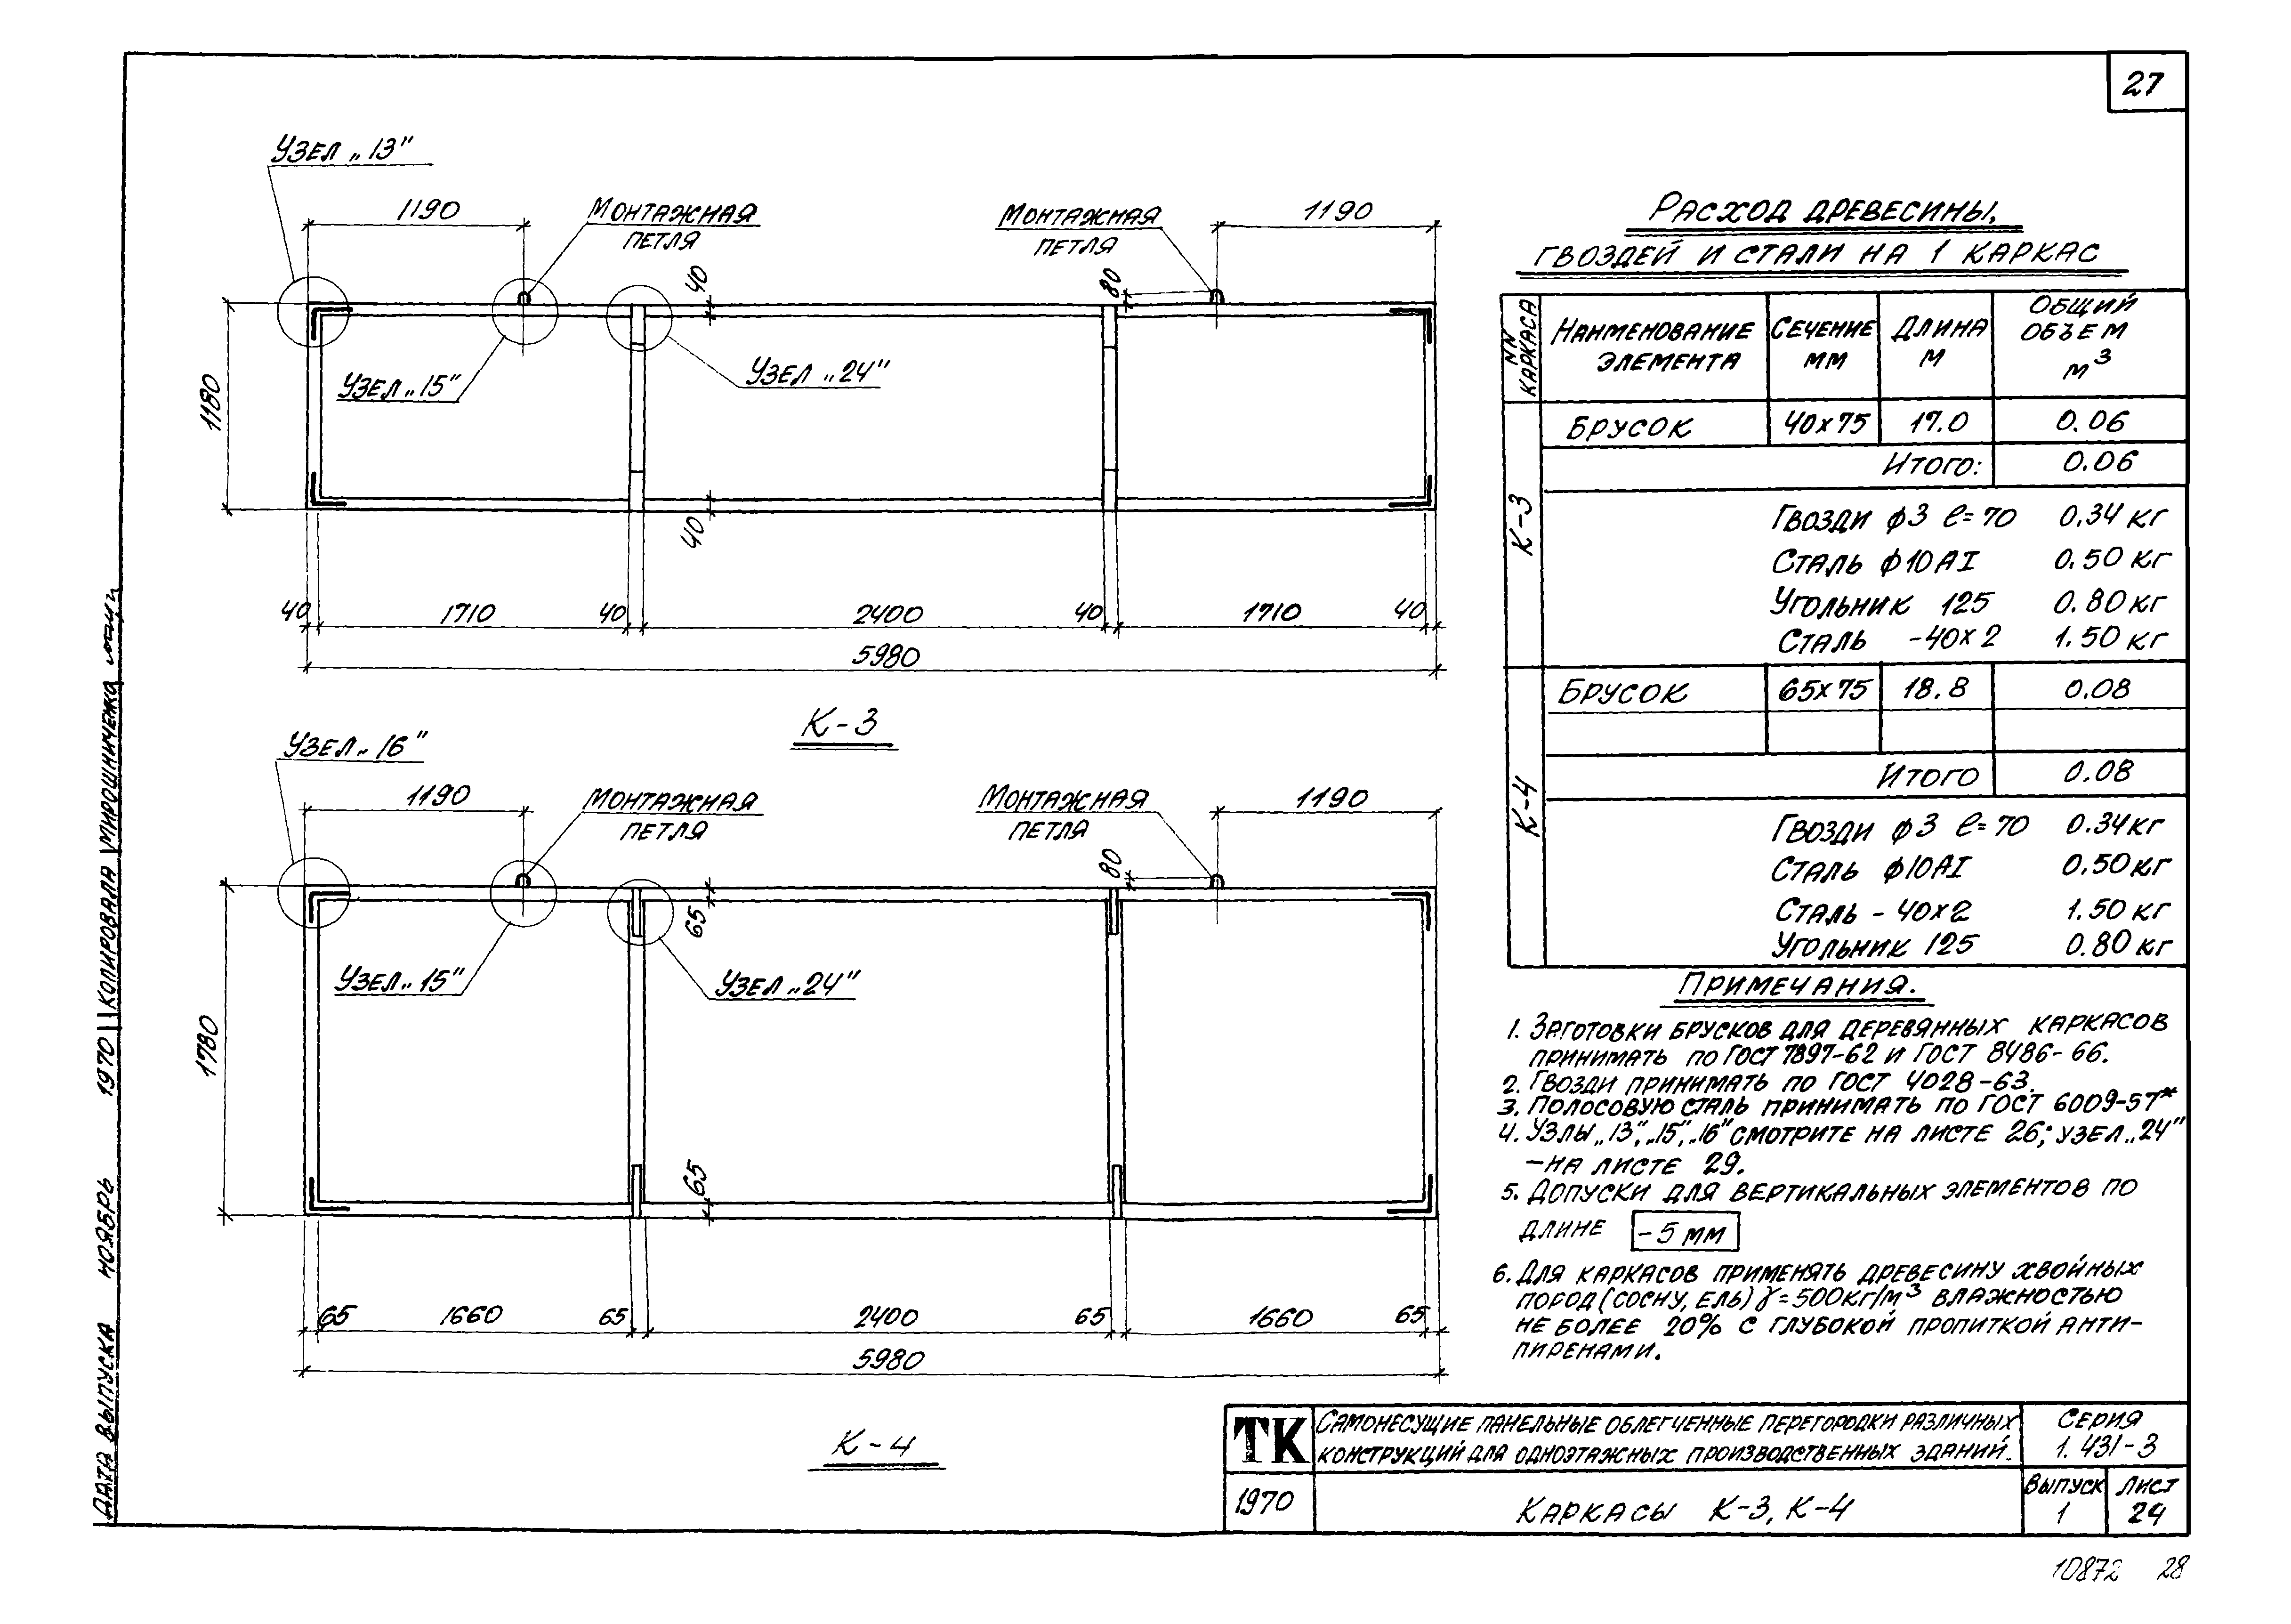 27
УЗЕЛ „13"
1190
МОНТАЖНАЯ
ПЕТЛЯ
МОНТАЖНАЯ
ПЕТЛЯ
1190
40
80
1180
УЗЕЛ „15"
УЗЕЛ „24"
40
40
1710
40
2400
40
1710
40
5980
К-3
УЗЕЛ „16"
1190
МОНТАЖНАЯ
ПЕТЛЯ
МОНТАЖНАЯ
ПЕТЛЯ
1190
80
65
1780
УЗЕЛ „15"
УЗЕЛ „24"
65
65
1660
65
2400
65
1660
65
5980
К-4
РАСХОД ДРЕВЕСИНЫ,
ГВОЗДЕЙ И СТАЛИ НА 1 КАРКАС
NN КАРКАСА
НАИМЕНОВАНИЕ ЭЛЕМЕНТА
СЕЧЕНИЕ ММ
ДЛИНА М
ОБЩИЙ ОБЪЕМ М³
К-3
БРУСОК 40х75 17.0 0.06
ИТОГО: 0.06
ГВОЗДИ ϕ3 ℓ=70 0.34 КГ
СТАЛЬ ϕ10АI 0.50 КГ
УГОЛЬНИК 125 0.80 КГ
СТАЛЬ -40х2 1.50 КГ
К-4
БРУСОК 65х75 18.8 0.08
ИТОГО 0.08
ГВОЗДИ ϕ3 ℓ=70 0.34 КГ
СТАЛЬ ϕ10АI 0.50 КГ
СТАЛЬ - 40х2 1.50 КГ
УГОЛЬНИК 125 0.80 КГ
ПРИМЕЧАНИЯ.
1. ЗАГОТОВКИ БРУСКОВ ДЛЯ ДЕРЕВЯННЫХ КАРКАСОВ
ПРИНИМАТЬ ПО ГОСТ 7897-62 И ГОСТ 8486-66.
2. ГВОЗДИ ПРИНИМАТЬ ПО ГОСТ 4028-63.
3. ПОЛОСОВУЮ СТАЛЬ ПРИНИМАТЬ ПО ГОСТ 6009-57*
4. УЗЛЫ „13", „15", „16" СМОТРИТЕ НА ЛИСТЕ 26; УЗЕЛ „24"
-НА ЛИСТЕ 29.
5. ДОПУСКИ ДЛЯ ВЕРТИКАЛЬНЫХ ЭЛЕМЕНТОВ ПО
ДЛИНЕ -5 ММ
6. ДЛЯ КАРКАСОВ ПРИМЕНЯТЬ ДРЕВЕСИНУ ХВОЙНЫХ
ПОРОД (СОСНУ, ЕЛЬ) γ=500КГ/М³ ВЛАЖНОСТЬЮ
НЕ БОЛЕЕ 20% С ГЛУБОКОЙ ПРОПИТКОЙ АНТИ-
ПИРЕНАМИ.
ТК
САМОНЕСУЩИЕ ПАНЕЛЬНЫЕ ОБЛЕГЧЕННЫЕ ПЕРЕГОРОДКИ РАЗЛИЧНЫХ
КОНСТРУКЦИЙ ДЛЯ ОДНОЭТАЖНЫХ ПРОИЗВОДСТВЕННЫХ ЗДАНИЙ.
СЕРИЯ
1.431-3
1970
КАРКАСЫ К-3, К-4
ВЫПУСК
1
ЛИСТ
24
10872 28
ДАТА ВЫПУСКА НОЯБРЬ 1970 КОПИРОВАЛА МИРОШНИЧЕНКО